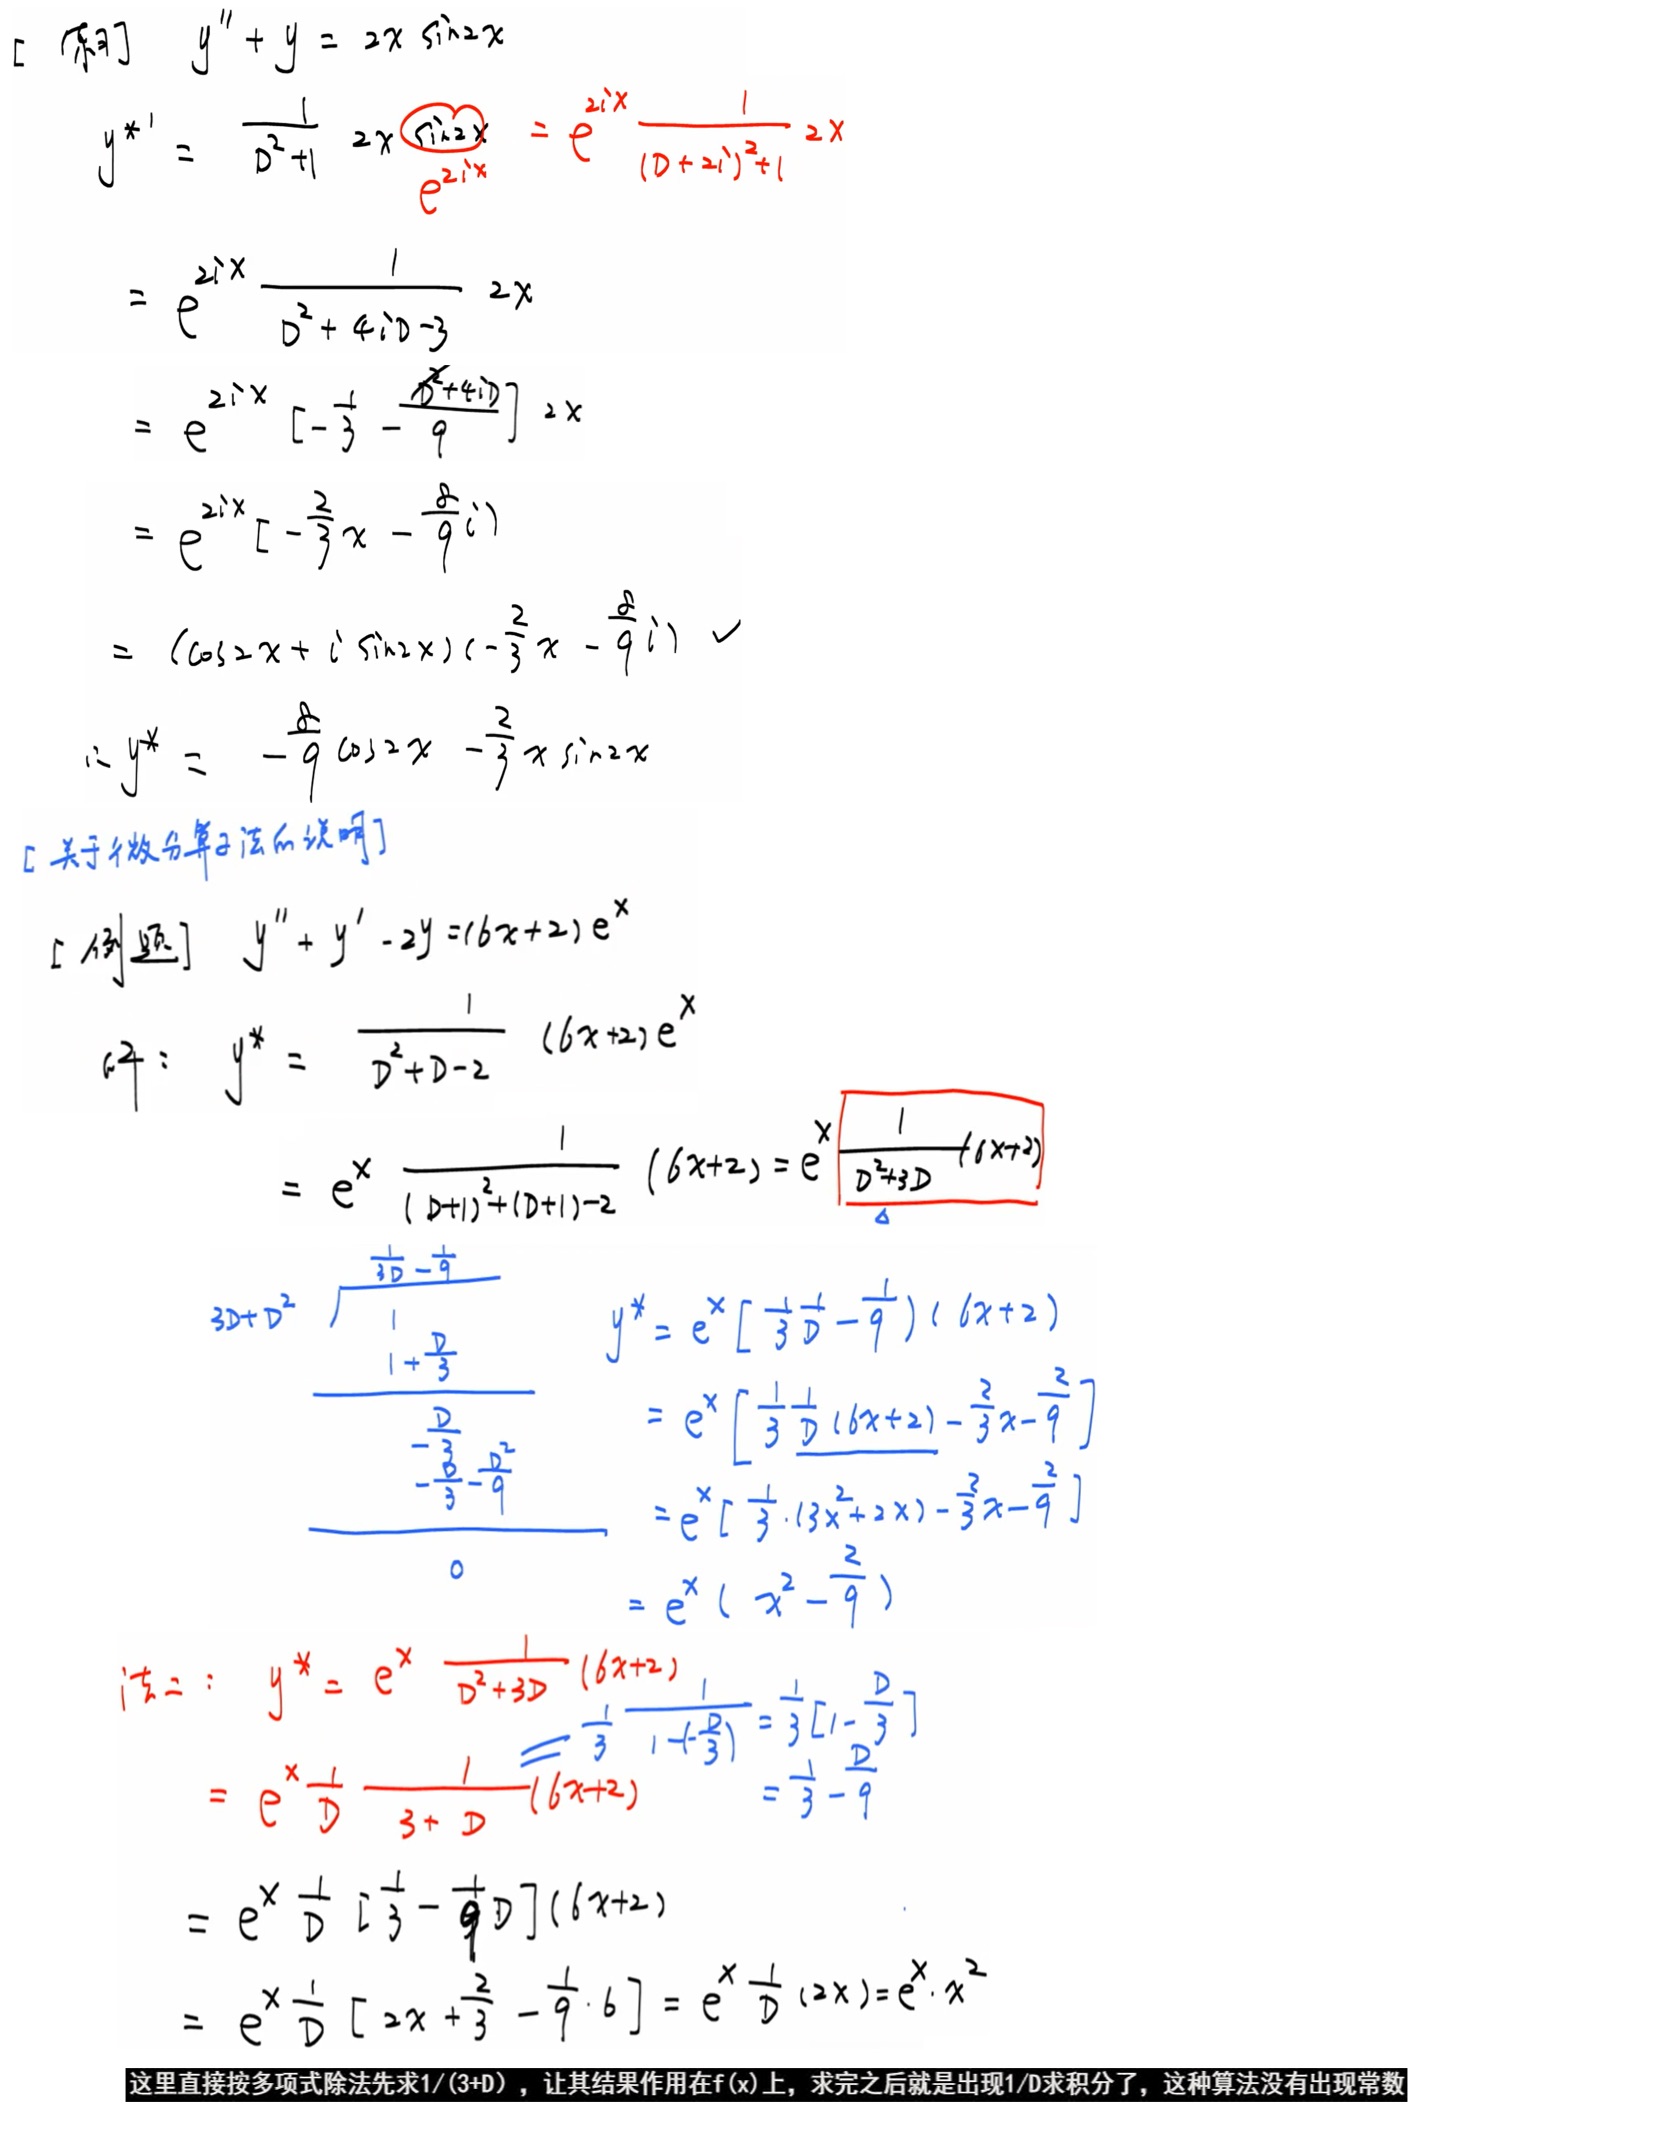 [例] y'' + y = 2x sin2x
y*' = 1/(D²+1) 2x sin2x = e^{2ix} 1/((D+2i)²+1) 2x
e^{2ix}
= e^{2ix} 1/(D²+4iD-3) 2x
= e^{2ix} [-1/3 - (D²+4iD)/9] 2x
= e^{2ix} [-2/3 x - 8/9 i)
= (cos2x + i sin2x)(-2/3 x - 8/9 i) ✓
∴ y* = -8/9 cos2x - 2/3 x sin2x
[关于微分算子法的说明]
[例题] y'' + y' - 2y = (6x+2)e^x
解: y* = 1/(D²+D-2) (6x+2)e^x
= e^x 1/((D+1)²+(D+1)-2) (6x+2) = e^x 1/(D²+3D) (6x+2)
Δ
1/3D - 1/9
3D+D²
1
1+D/3
-D/3
-D/3 - D²/9
0
y* = e^x [1/3 1/D - 1/9)(6x+2)
= e^x [1/3 1/D (6x+2) - 2/3 x - 2/9]
= e^x [1/3·(3x²+2x) - 2/3 x - 2/9]
= e^x (x² - 2/9)
法二: y* = e^x 1/(D²+3D) (6x+2)
= 1/3 1/(1-(-D/3)) = 1/3 [1-D/3]
= 1/3 - D/9
= e^x 1/D 1/(3+D) (6x+2)
= e^x 1/D [1/3 - 1/9 D](6x+2)
= e^x 1/D [2x + 2/3 - 1/9·6] = e^x 1/D (2x) = e^x·x²
这里直接按多项式除法先求1/(3+D)，让其结果作用在f(x)上，求完之后就是出现1/D求积分了，这种算法没有出现常数